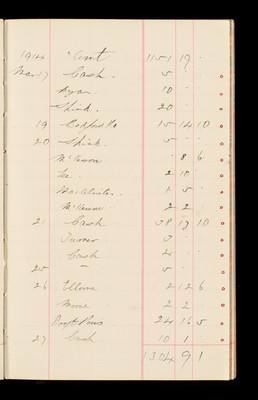 1914 Cont 1151 19 -
Mar 17 Cash. 5 - -
Ryan. 10 - -
Spink. 20 - -
19 Bedford Ho 15 14 10
20 Spink. 5 - -
McKenna - 8 6
Lee. 2 10 -
1 5 -
McKenna 2 2 -
21 Cash 38 19 10
Turner 3 - -
Cash 4 - -
25 - 5 - -
26 2 12 6
2 2 -
24 16 5
27 Cash 10 1 -
1304 9 1